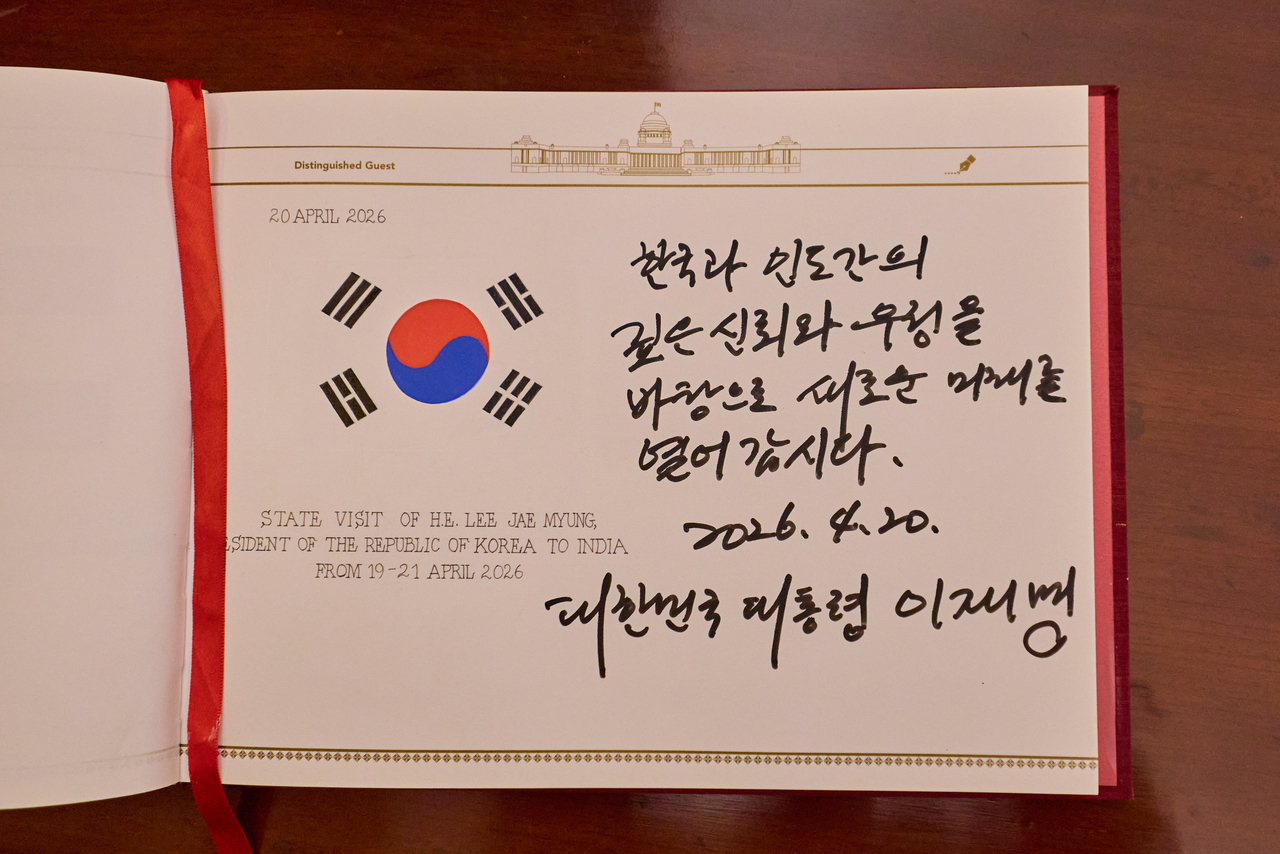 Distinguished Guest
20 APRIL 2026
STATE VISIT OF H.E. LEE JAE MYUNG,
ESIDENT OF THE REPUBLIC OF KOREA TO INDIA
FROM 19-21 APRIL 2026
한국과 인도간의
깊은 신뢰와 우정을
바탕으로 새로운 미래를
열어 갑시다.
2026. 4. 20.
대한민국 대통령 이재명